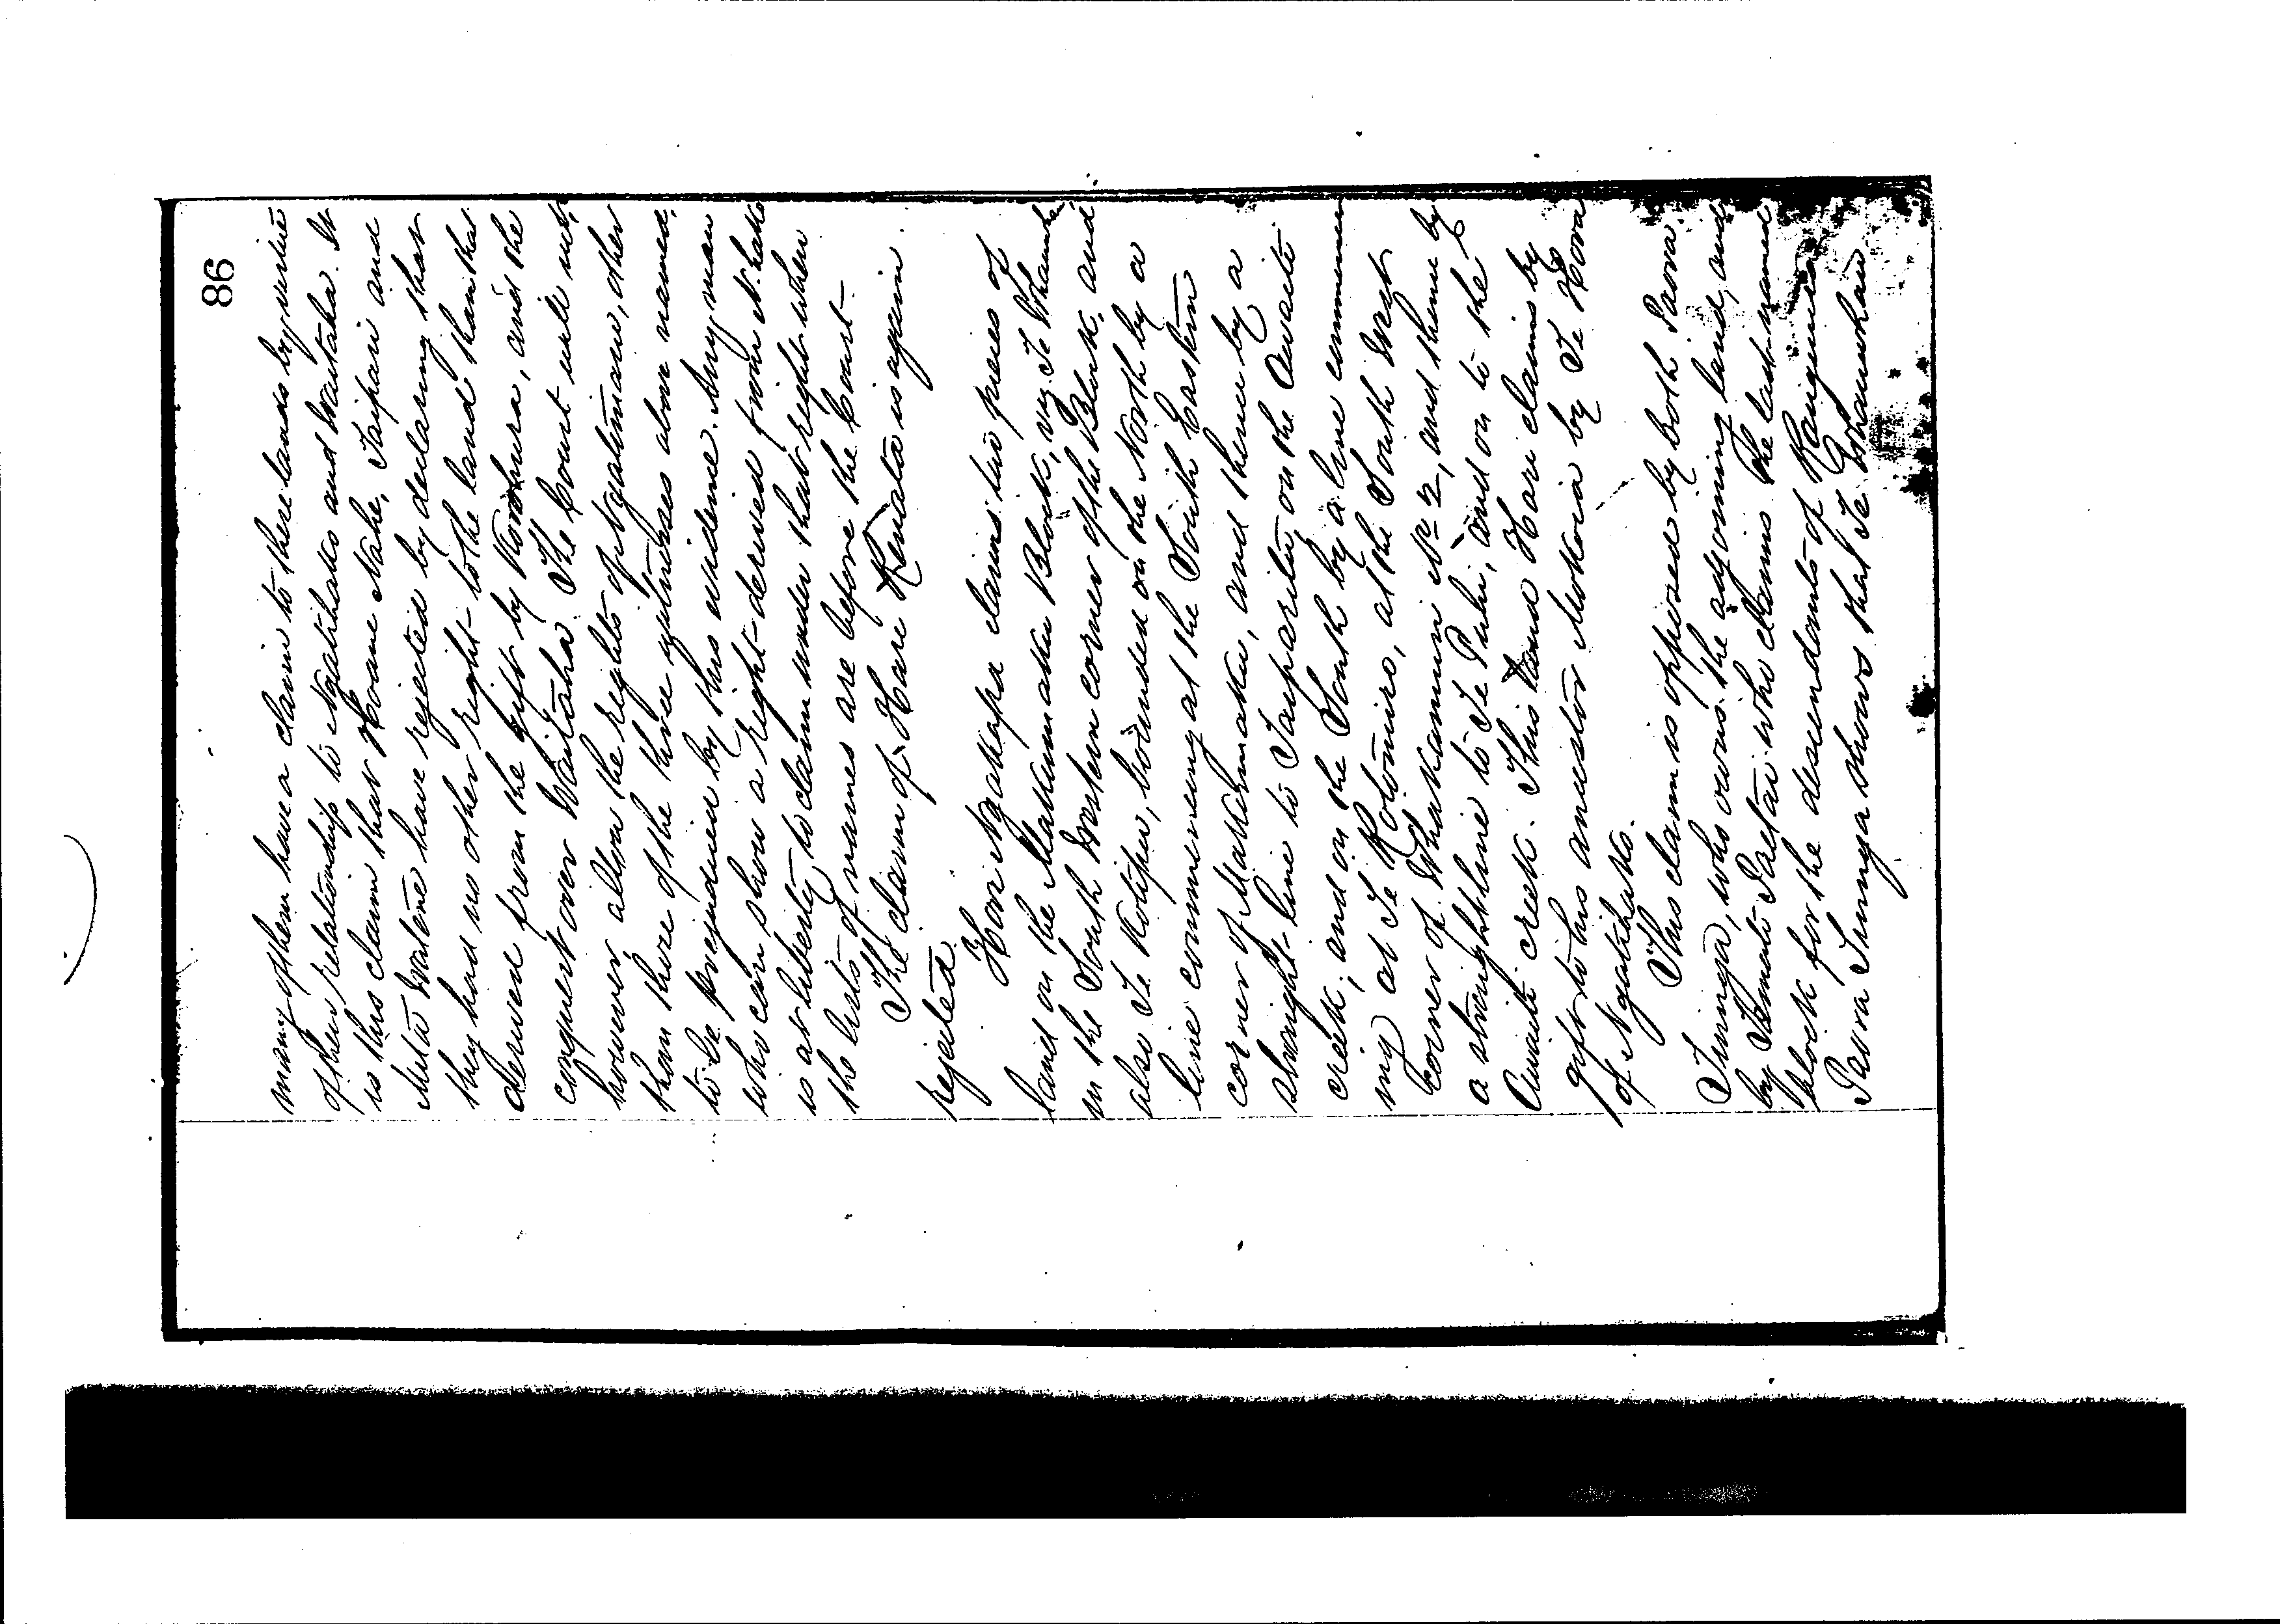 86
many of them have a claim to these lands by virtue
of their relationship to Ngatihako and Waitaha. It
is this claim that Hoani Nahe, Taipari and
Muta Watene have rejected by declaring that
they had no other right to the land than that
derived from the gift by and the
conquest over Waitaha. The Court will not
however allow the rights of Ngatimaru, other
than those of the three witnesses above named,
to be prejudiced by this evidence. Any man
who can show a right derived from N. hako
is at liberty to claim under that right when
the lists of names are before the Court.
The claim of Hare Renata is again
rejected.
Hori Ngakapa claims two pieces of
land on the Block, viz. Te
in the South Western corner of the Block, and
also Te Kotipu, bounded on the North by a
line commencing at the South Eastern
corner of and thence by a
straight line to on the Awaiti
creek, and on the South by a line commenc
ing at Te Kotuiro, at the South West
corner of Whakamuri No 2, and thence by
a straight line to Te Puhi, and on to the
Awaiti creek. This land Hori claims by
gift to his ancestor by Te Hora
of Ngatihako.
This claim is opposed by both Paora
Tunga, who owns the adjoining land, and
by who claims the last named
block for the descendants of
Paora Tunga shows that Te